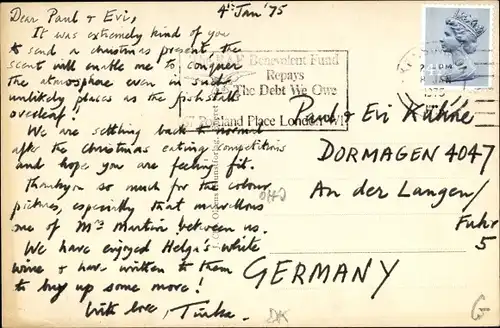 4th Jan '75
Dear Paul & Evi,
It was extremely kind of you
to send a christmas present, the
scent will enable me to conquer
the atmosphere even in such
unlikely places as the fish stall
overleaf!
We are settling back to normal
after the christmas eating competitions
and hope you are feeling fit.
Thankyou so much for the colour
pictures, especially that marvellous
one of Mrs Martin between us.
We have enjoyed Helga's white
wine & have written to them
to buy up some more!
With love,
Benevolent Fund
Repays
The Debt We Owe
67 Portland Place London W1
Paul & Evi Kühne
DORMAGEN 4047
An der Langen/
Fuhr
5
GERMANY
DK
G